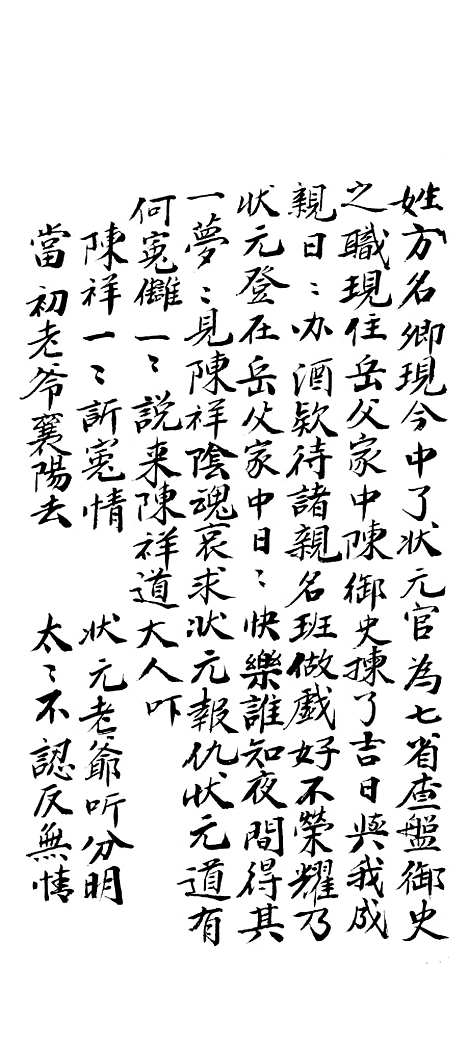 姓方名卿現今中了状元官為七省查盤御史
之職現住岳父家中陳御史揀了吉日與我成
親日〻办酒欵待諸親名班做戯好不榮耀乃
状元登在岳父家中日〻快樂誰知夜間得其
一夢〻見陳祥陰魂哀求状元報仇状元道有
何寃讎一〻説来陳祥道大人吓
陳祥一〻訴寃情　状元老爺听分明
當初老爷襄陽去　太〻不認反無情